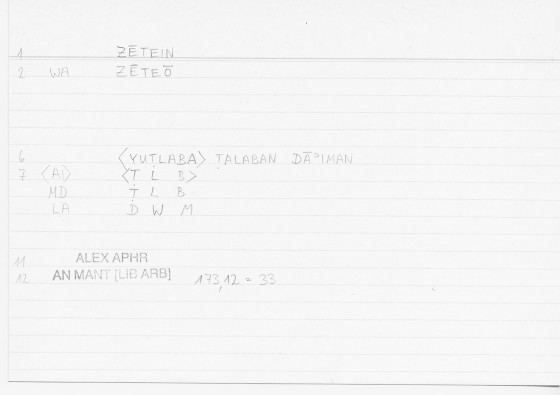 1 ZĒTEIN
2 WA ZĒTEŌ
6 〈YUṬLABA〉 ṬALABAN DĀʾIMAN
7 〈AI〉 〈Ṭ L B〉
MD Ṭ L B
LA D W M
11 ALEX APHR
12 AN MANT [LIB ARB] 173,12 = 33